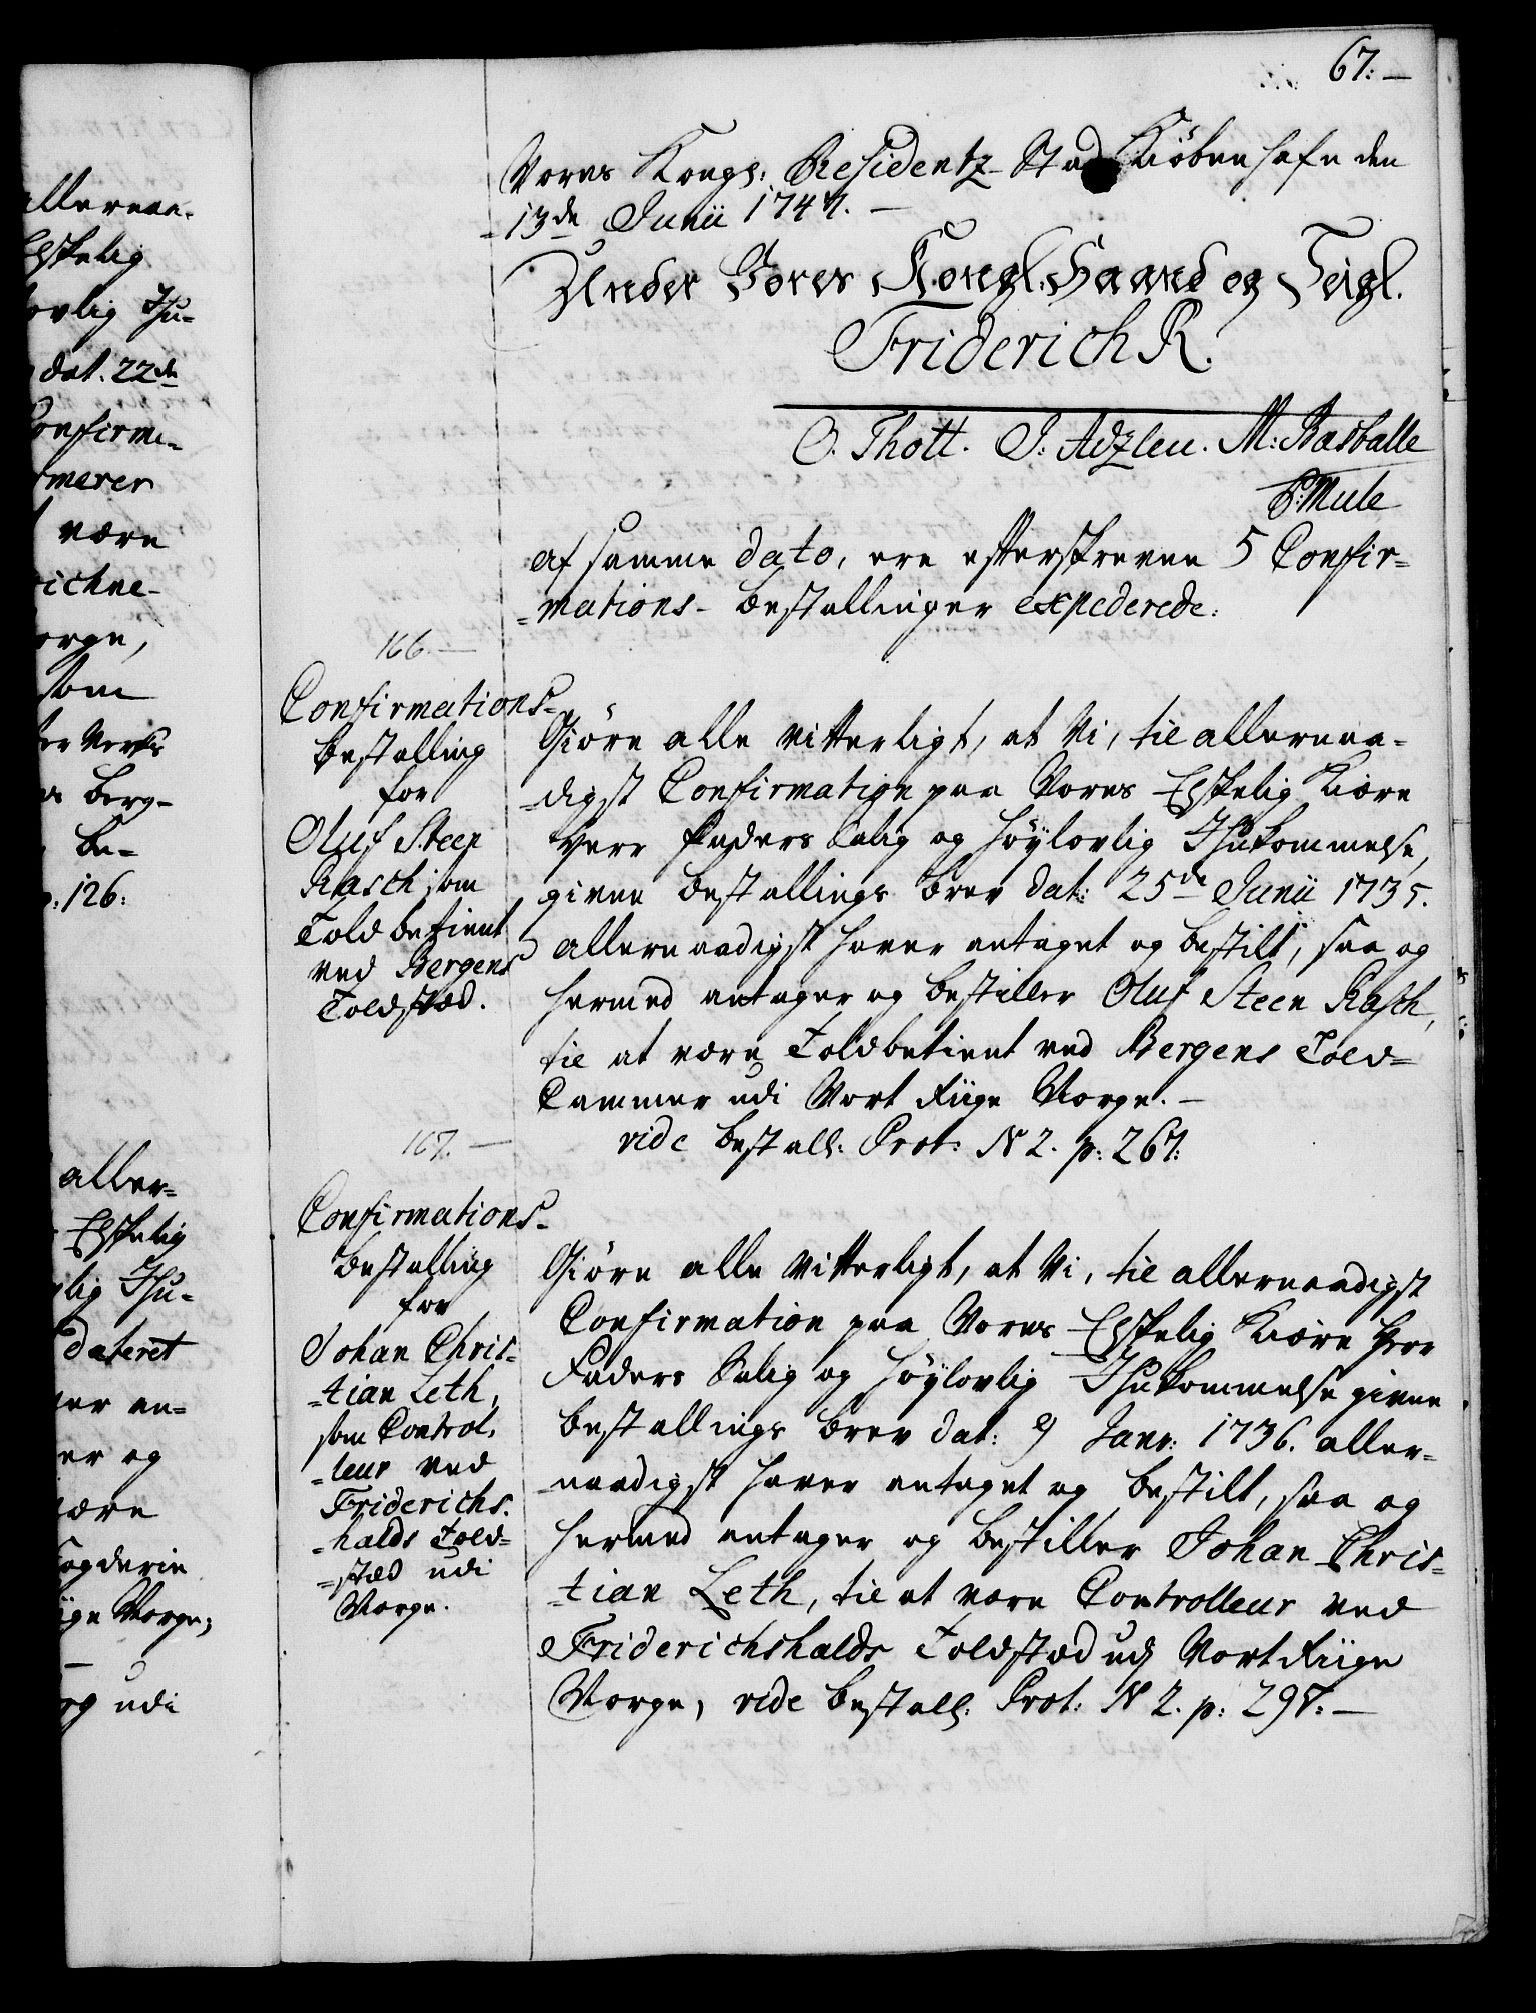 67:
Vores Kongl: Residentz-Stad Kiöbenhafn den
13de Junii 1747.
Under Vores Kongl. Haand og Seigl.
Friderich R.
O. Thott. J: Adzleu. M: Rasballe
P: Mule
Af samme dato, ere efterskrevne 5 Confir=
=mations-bestallinger expederede:
166.
Confirmations-
bestalling
for
Oluf Steen
Rasch som
Toldbetient
ved Bergens
Toldstæd.
Giöre alle vitterligt, at Vi, til allernaa=
=digst Confirmation paa Vores Elskelig Kiære
Herr Faders Salig og höylovlig Ihukommelse,
givne bestallings brev dat: 25de Junii 1735.
allernaadigst haver antaget og bestilt, saa og
hermed antager og bestiller Oluf Steen Rasch,
til at være Toldbetient ved Bergens Told=
Cammer udi Vort Riige Norge.
vide bestall: Prot: N 2. p: 267:
167.
Confirmations-
bestalling
for
Johan Chris=
=tian Leth,
som Control=
=leur ved
Friderichs=
=halds Told=
=stæd udi
Norge.
Giöre alle vitterligt, at Vi, til allernaadigst
Confirmation paa Vores Elskelig Kiære Herr
Faders Salig og höylovlig Ihukommelse givne
bestallings brev dat: 9 Janr: 1736. aller=
=naadigst haver antaget og bestilt, saa og
hermed antager og bestiller Johan Chris=
=tian Leth, til at være Controlleur ved
Friderichshalds Toldstæd udj Vort Riige
Norge, vide bestall: Prot: N 2. p: 298:
allernaa=
Elskelig
Ihu=
dat. 22de
Confirme-
være
Norge,
som
berg-
be-
p: 126:
aller=
Elskelig
Ihu=
dateret
an=
og
være
Norge;
udi